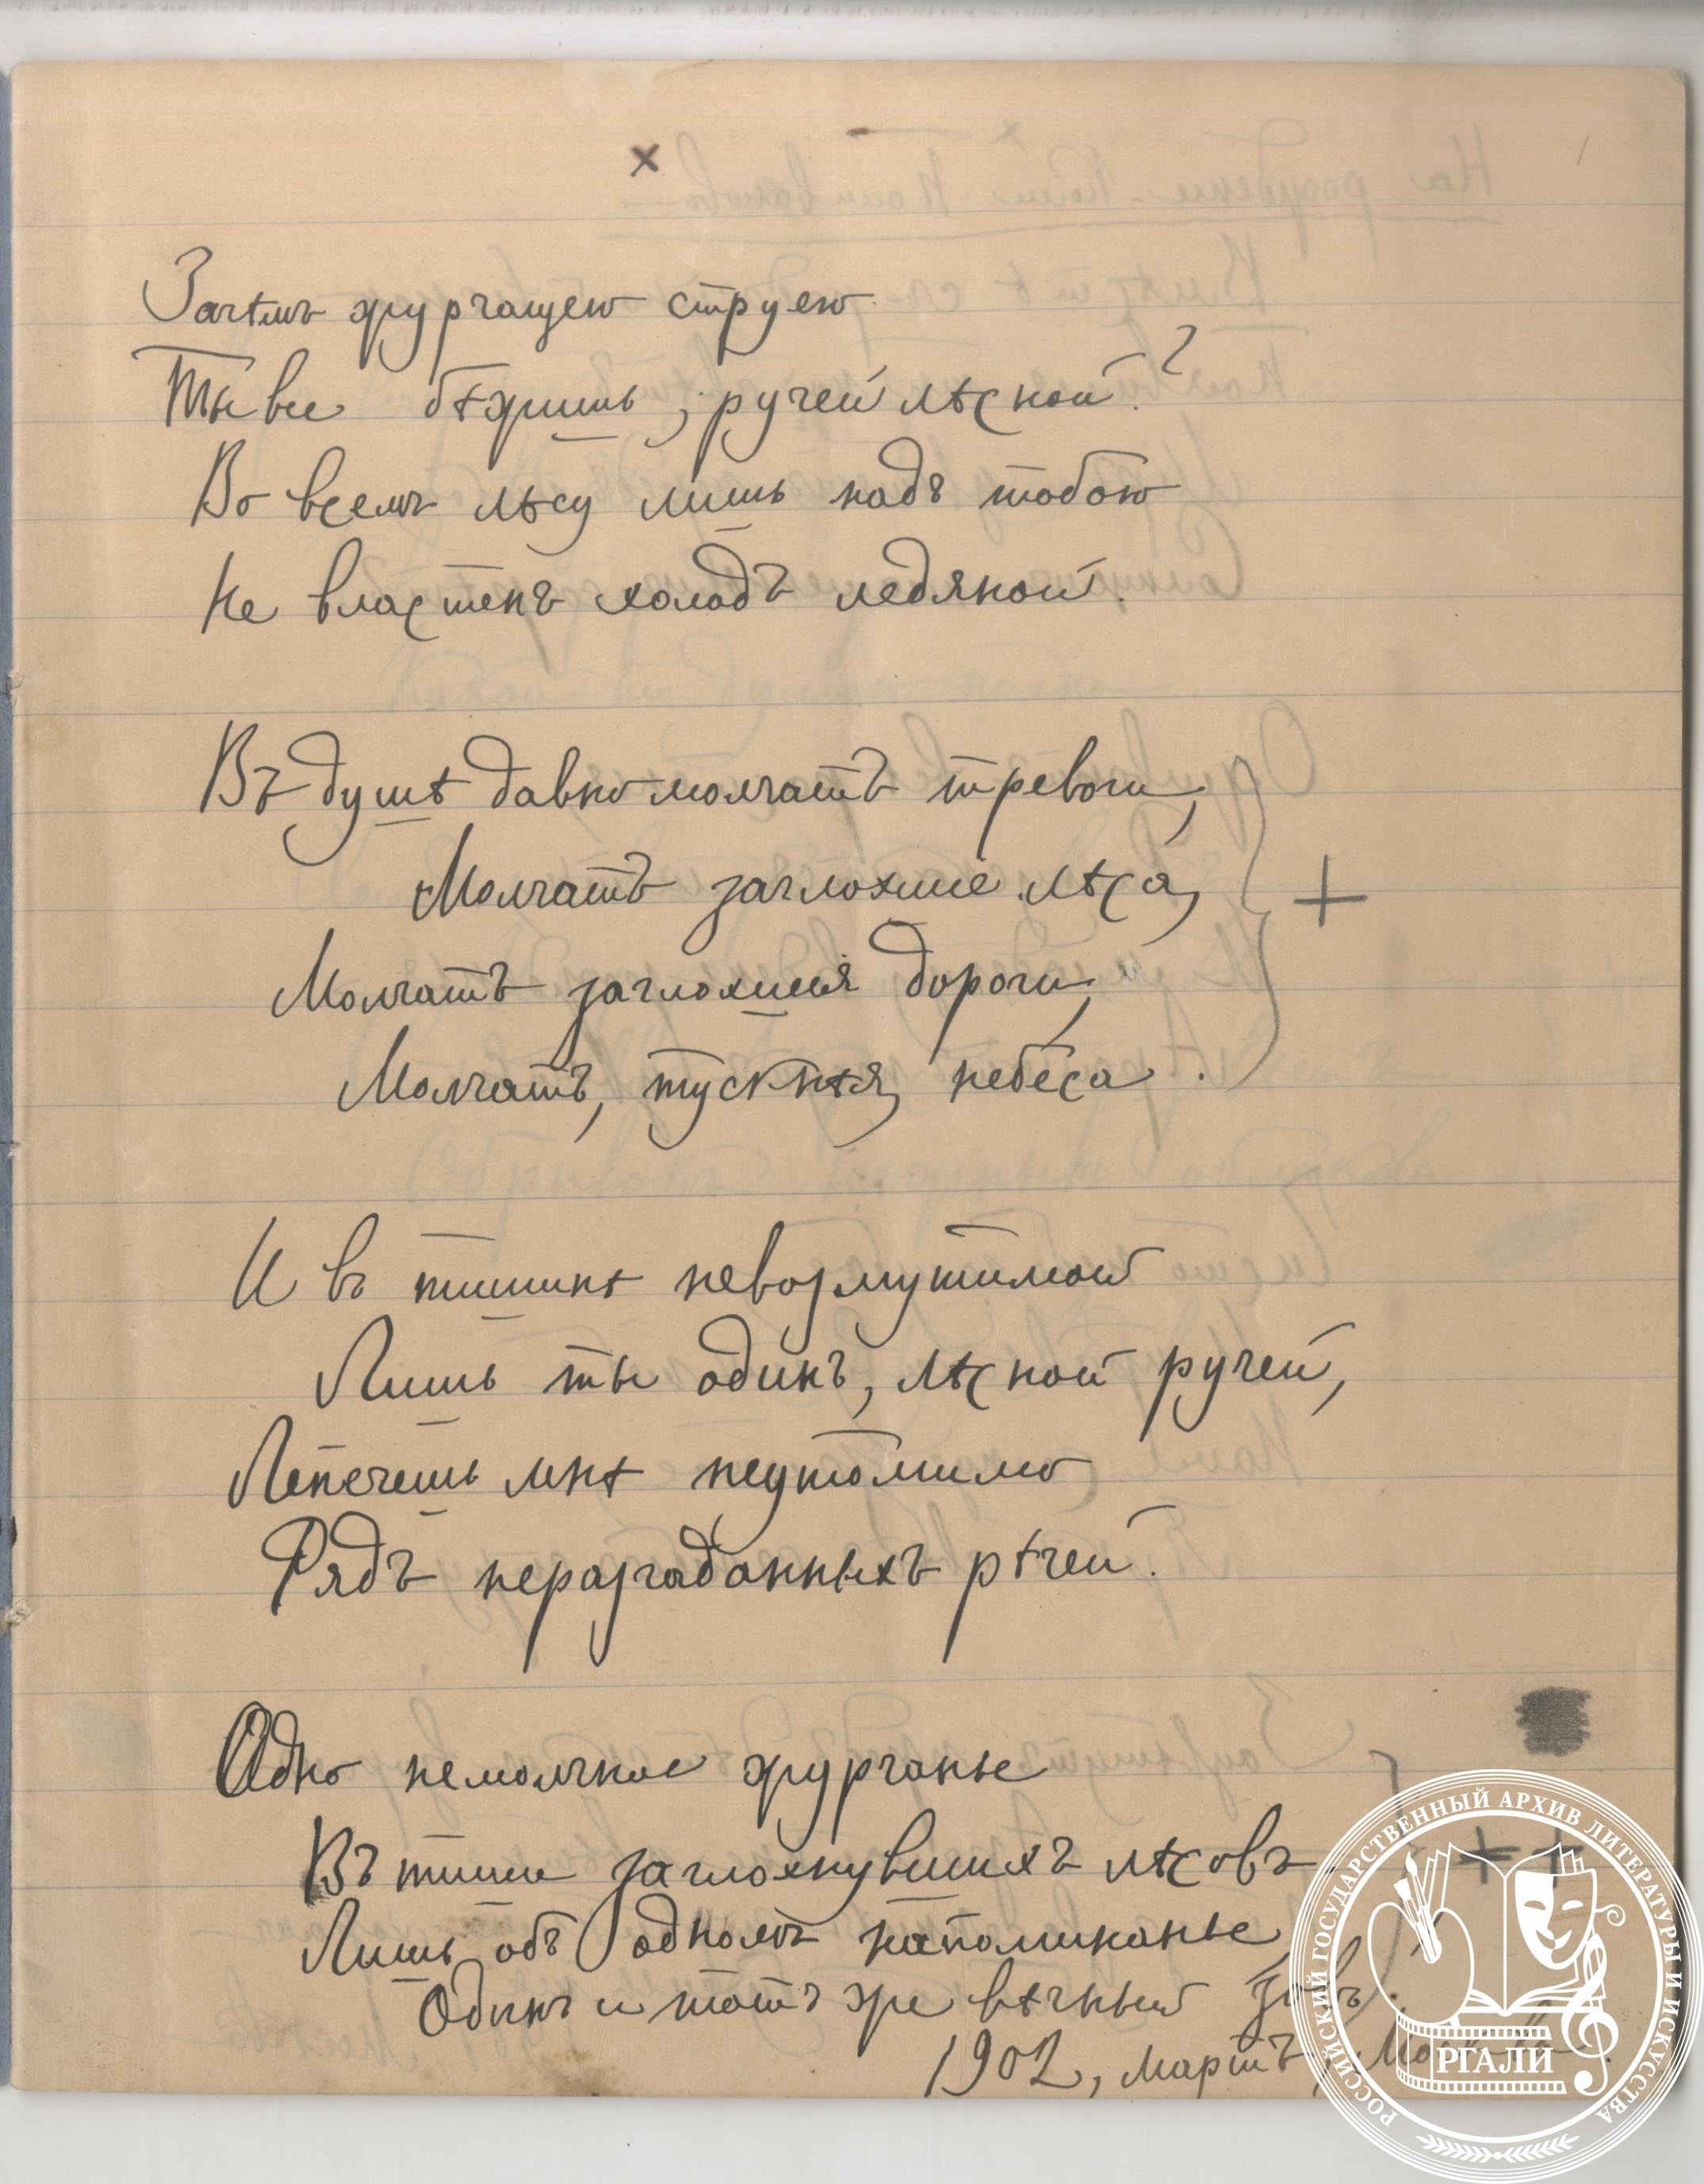 х
Зачѣмъ журчащею струею
Ты все бѣжишь, ручей лѣсной?
Во всемъ лѣсу лишь надъ тобою
Не властенъ холодъ ледяной.
Въ душѣ давно молчатъ тревоги,
Молчатъ заглохшіе лѣса,
Молчатъ заглохшія дороги,
+
Молчатъ, тускнѣя, небеса.
И въ тишинѣ невозмутимой
Лишь ты одинъ, лѣсной ручей,
Лепечешь мнѣ неутомимо
Рядъ неразгаданныхъ рѣчей.
Одно немолчное журчанье
Въ тиши заглохнувшихъ лѣсовъ
Лишь объ одномъ напоминанье
Одинъ и тотъ же вѣчный зовъ.
1902, мартъ, Москва.
РОССИЙСКИЙ ГОСУДАРСТВЕННЫЙ АРХИВ ЛИТЕРАТУРЫ И ИСКУССТВА
РГАЛИ